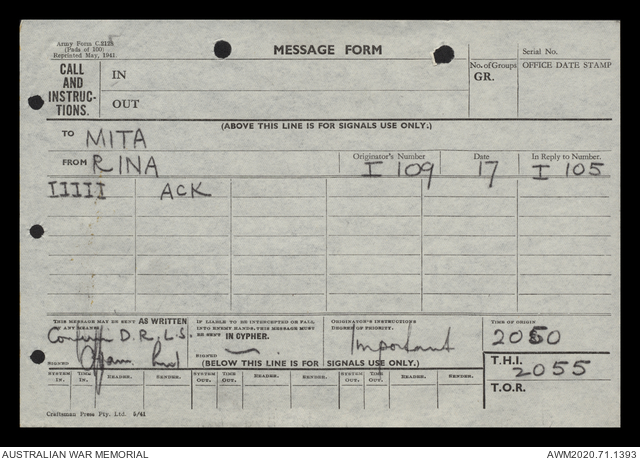 Army Form C.2128
(Pads of 100)
Reprinted May, 1941
MESSAGE FORM
Serial No.
CALL AND INSTRUC- TIONS.
IN
OUT
No. of Groups
GR.
OFFICE DATE STAMP
(ABOVE THIS LINE IS FOR SIGNALS USE ONLY.)
TO MITA
FROM RINA
Originator's Number
I 109
Date
17
In Reply to Number.
I 105
IIIII ACK
THIS MESSAGE MAY BE SENT AS WRITTEN
BY ANY MEANS
D.R.L.S.
SIGNED
IF LIABLE TO BE INTERCEPTED OR FALL
INTO ENEMY HANDS, THIS MESSAGE MUST
BE SENT IN CYPHER.
SIGNED
ORIGINATOR'S INSTRUCTIONS
DEGREE OF PRIORITY.
Important
TIME OF ORIGIN
2050
T.H.I.
2055
T.O.R.
(BELOW THIS LINE IS FOR SIGNALS USE ONLY.)
SYSTEM IN. TIME IN. READER. SENDER. SYSTEM OUT. TIME OUT. READER. SENDER. SYSTEM OUT. TIME OUT. READER. SENDER.
Craftsman Press Pty. Ltd. 5/41
AUSTRALIAN WAR MEMORIAL
AWM2020.71.1393